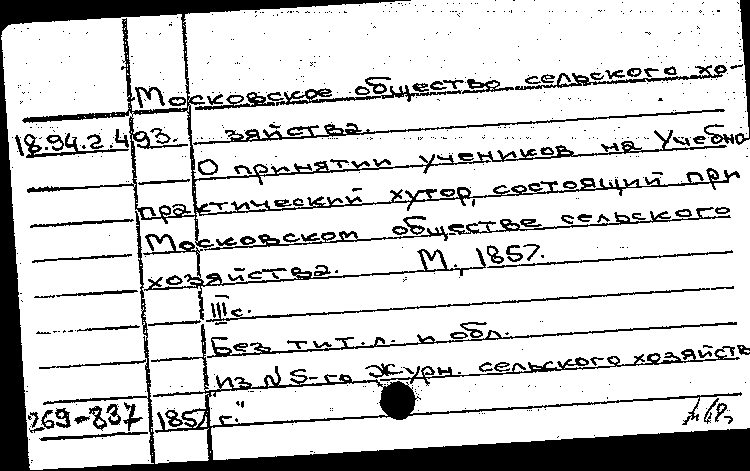 Московское общество сельского хо-
18.94.2.493. зяйства.
О принятии учеников на Учебно
практический хутор, состоящий при
Московском обществе сельского
хозяйства. М., 1857.
III с.
Без тит. л. и обл.
"Из №5-го Журн. сельского хозяйств
269-837 1857 г."